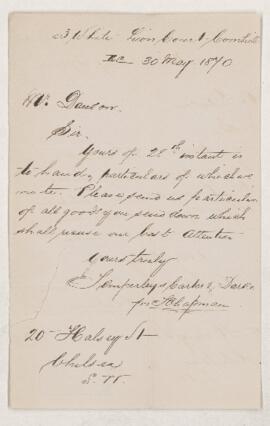 3, White Lion Court Cornhill
E.C. 30 May 1870
Mr. Dawson.
Sir.
Yours of 28th instant is
to hand, particulars of which we
note. Please send us particulars
of all goods you send down which
shall receive our best attention
Yours truly
Temperleys Carter & Darke
pr Chapman
20 Halsey St
Chelsea
S.W.